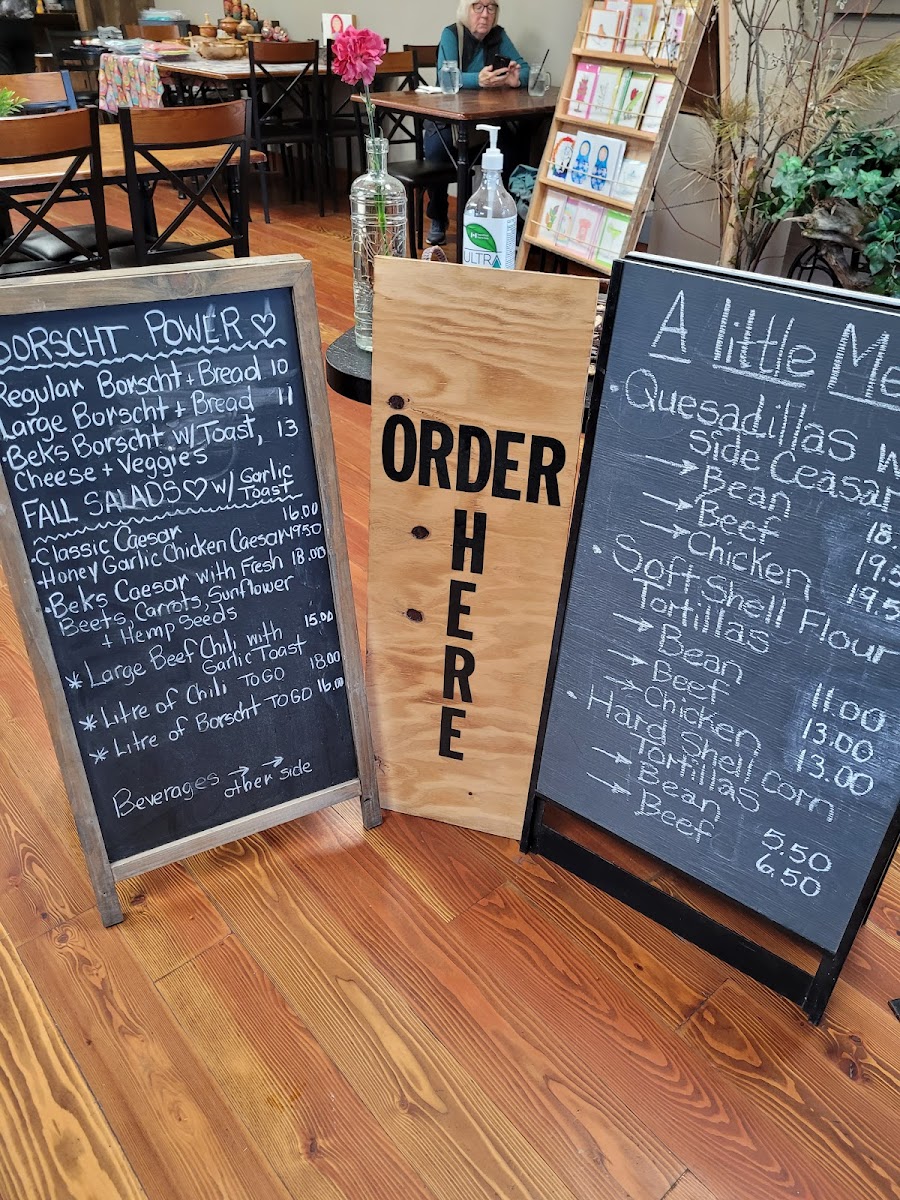 BORSCHT POWER ♡
Regular Borscht + Bread 10
Large Borscht + Bread 11
• Beks Borscht w/ Toast, 13
Cheese + Veggies
FALL SALADS ♡ w/ Garlic
Toast
• Classic Caesar 16.00
• Honey Garlic Chicken Caesar 19.50
• Beks Caesar with Fresh 18.00
Beets, Carrots, Sunflower
+ Hemp Seeds
* Large Beef Chili with 15.00
Garlic Toast
* Litre of Chili TO GO 18.00
* Litre of Borscht TO GO 16.00
Beverages → →
other side
ULTRA
ORDER
H
E
R
E
A little Me
• Quesadillas w
Side Ceasar
→ Bean 18.
→ Beef 19.5
→ Chicken 19.5
• Soft Shell Flour
Tortillas
→ Bean 11.00
→ Beef 13.00
→ Chicken 13.00
• Hard Shell Corn
Tortillas
→ Bean 5.50
→ Beef 6.50